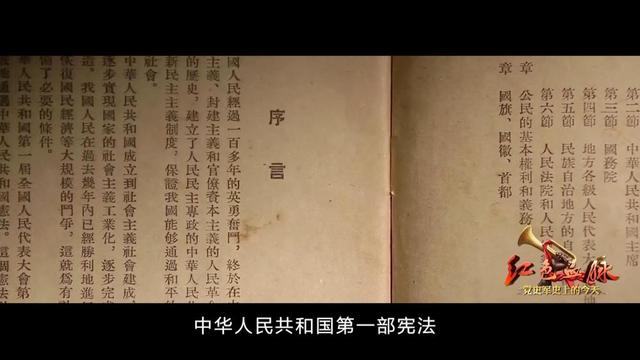 第二節 中華人民共和國主席
第三節 國務院
第四節 地方各級人民代
第五節 民族自治地方的自
第六節 人民法院和人民
章 公民的基本權利和義務
章 國旗、國徽、首都
序言
國人民經過一百多年的英勇奮鬥，終於在
主義、封建主義和官僚資本主義的人民革
的歷史，建立了人民民主專政的中華人民
新民主主義制度，保證我國能夠通過和平的
社會。
中華人民共和國成立到社會主義社會建成，
逐步實現國家的社會主義工業化，逐步完
造。我國人民在過去幾年內已經勝利地進
恢復國民經濟等大規模的鬥爭，這就爲有
備了必要的條件。
華人民共和國第一屆全國人民代表大會第
通過中華人民共和國憲法。這個憲法
红色血脉
党史军史上的今天
中华人民共和国第一部宪法